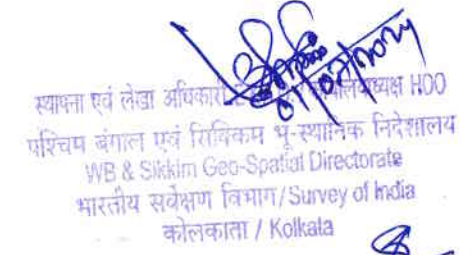 स्थापना एवं लेखा अधिकारी HOO
पश्चिम बंगाल एवं सिक्किम भू-स्थानिक निदेशालय
WB & Sikkim Geo-Spatial Directorate
भारतीय सर्वेक्षण विभाग/Survey of India
कोलकाता / Kolkata